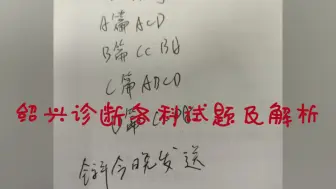 A篇 ACD
B篇 CCBA
C篇 ADCD
绍兴诊断各科试题及解析
今晚发送